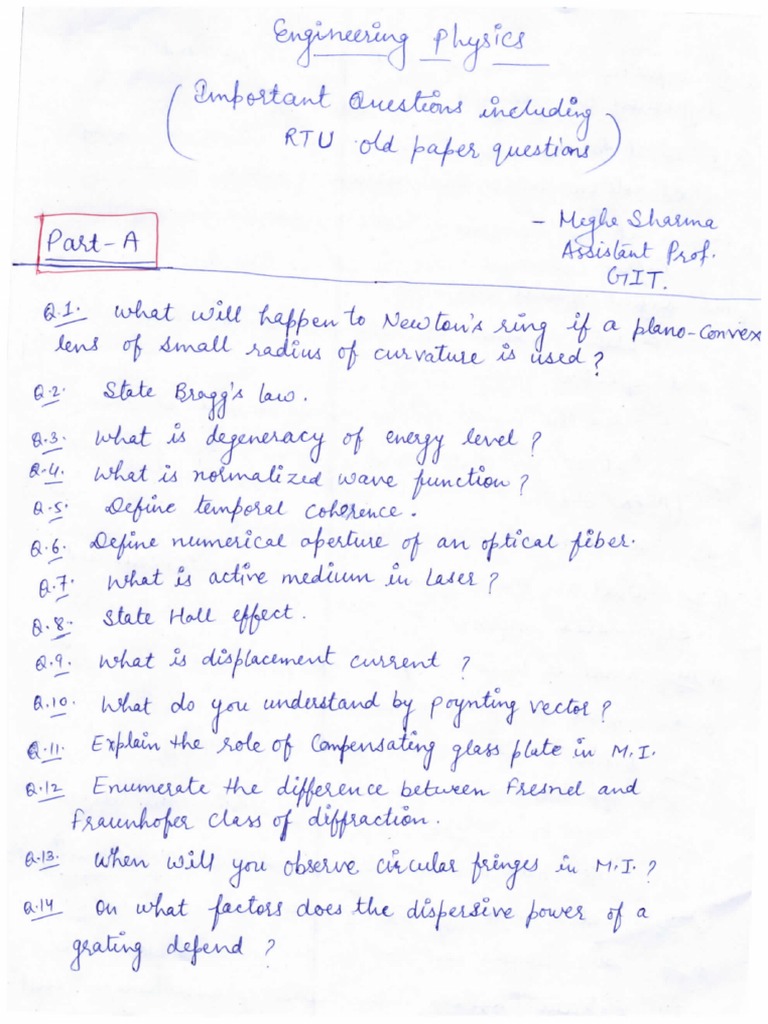 Engineering Physics
(Important Questions including
RTU old paper questions)
- Megha Sharma
Part-A
Assistant Prof.
GIT.
Q.1. What will happen to Newton's ring if a plano-convex
lens of small radius of curvature is used?
Q.2. State Bragg's law.
Q.3. What is degeneracy of energy level?
Q.4. What is normalized wave function?
Q.5. Define temporal coherence.
Q.6. Define numerical aperture of an optical fiber.
Q.7. What is active medium in Laser?
Q.8. State Hall effect.
Q.9. What is displacement current?
Q.10. What do you understand by Poynting vector?
Q.11. Explain the role of Compensating glass plate in M.I.
Q.12 Enumerate the difference between Fresnel and
Fraunhofer class of diffraction.
Q.13. When will you observe circular fringes in M.I.?
Q.14 On what factors does the dispersive power of a
grating depend?